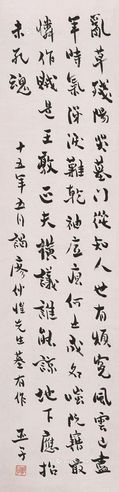 亂草殘陽哭墓門從知人世有煩冤風雲已盡
年時氣涕淚難乾袖底痕何止成名嗤阮籍最
憐作賊是王敦匹夫橫議誰能諒地下應招
未死魂 十五年五月謁廖仲愷先生墓有作 亞子